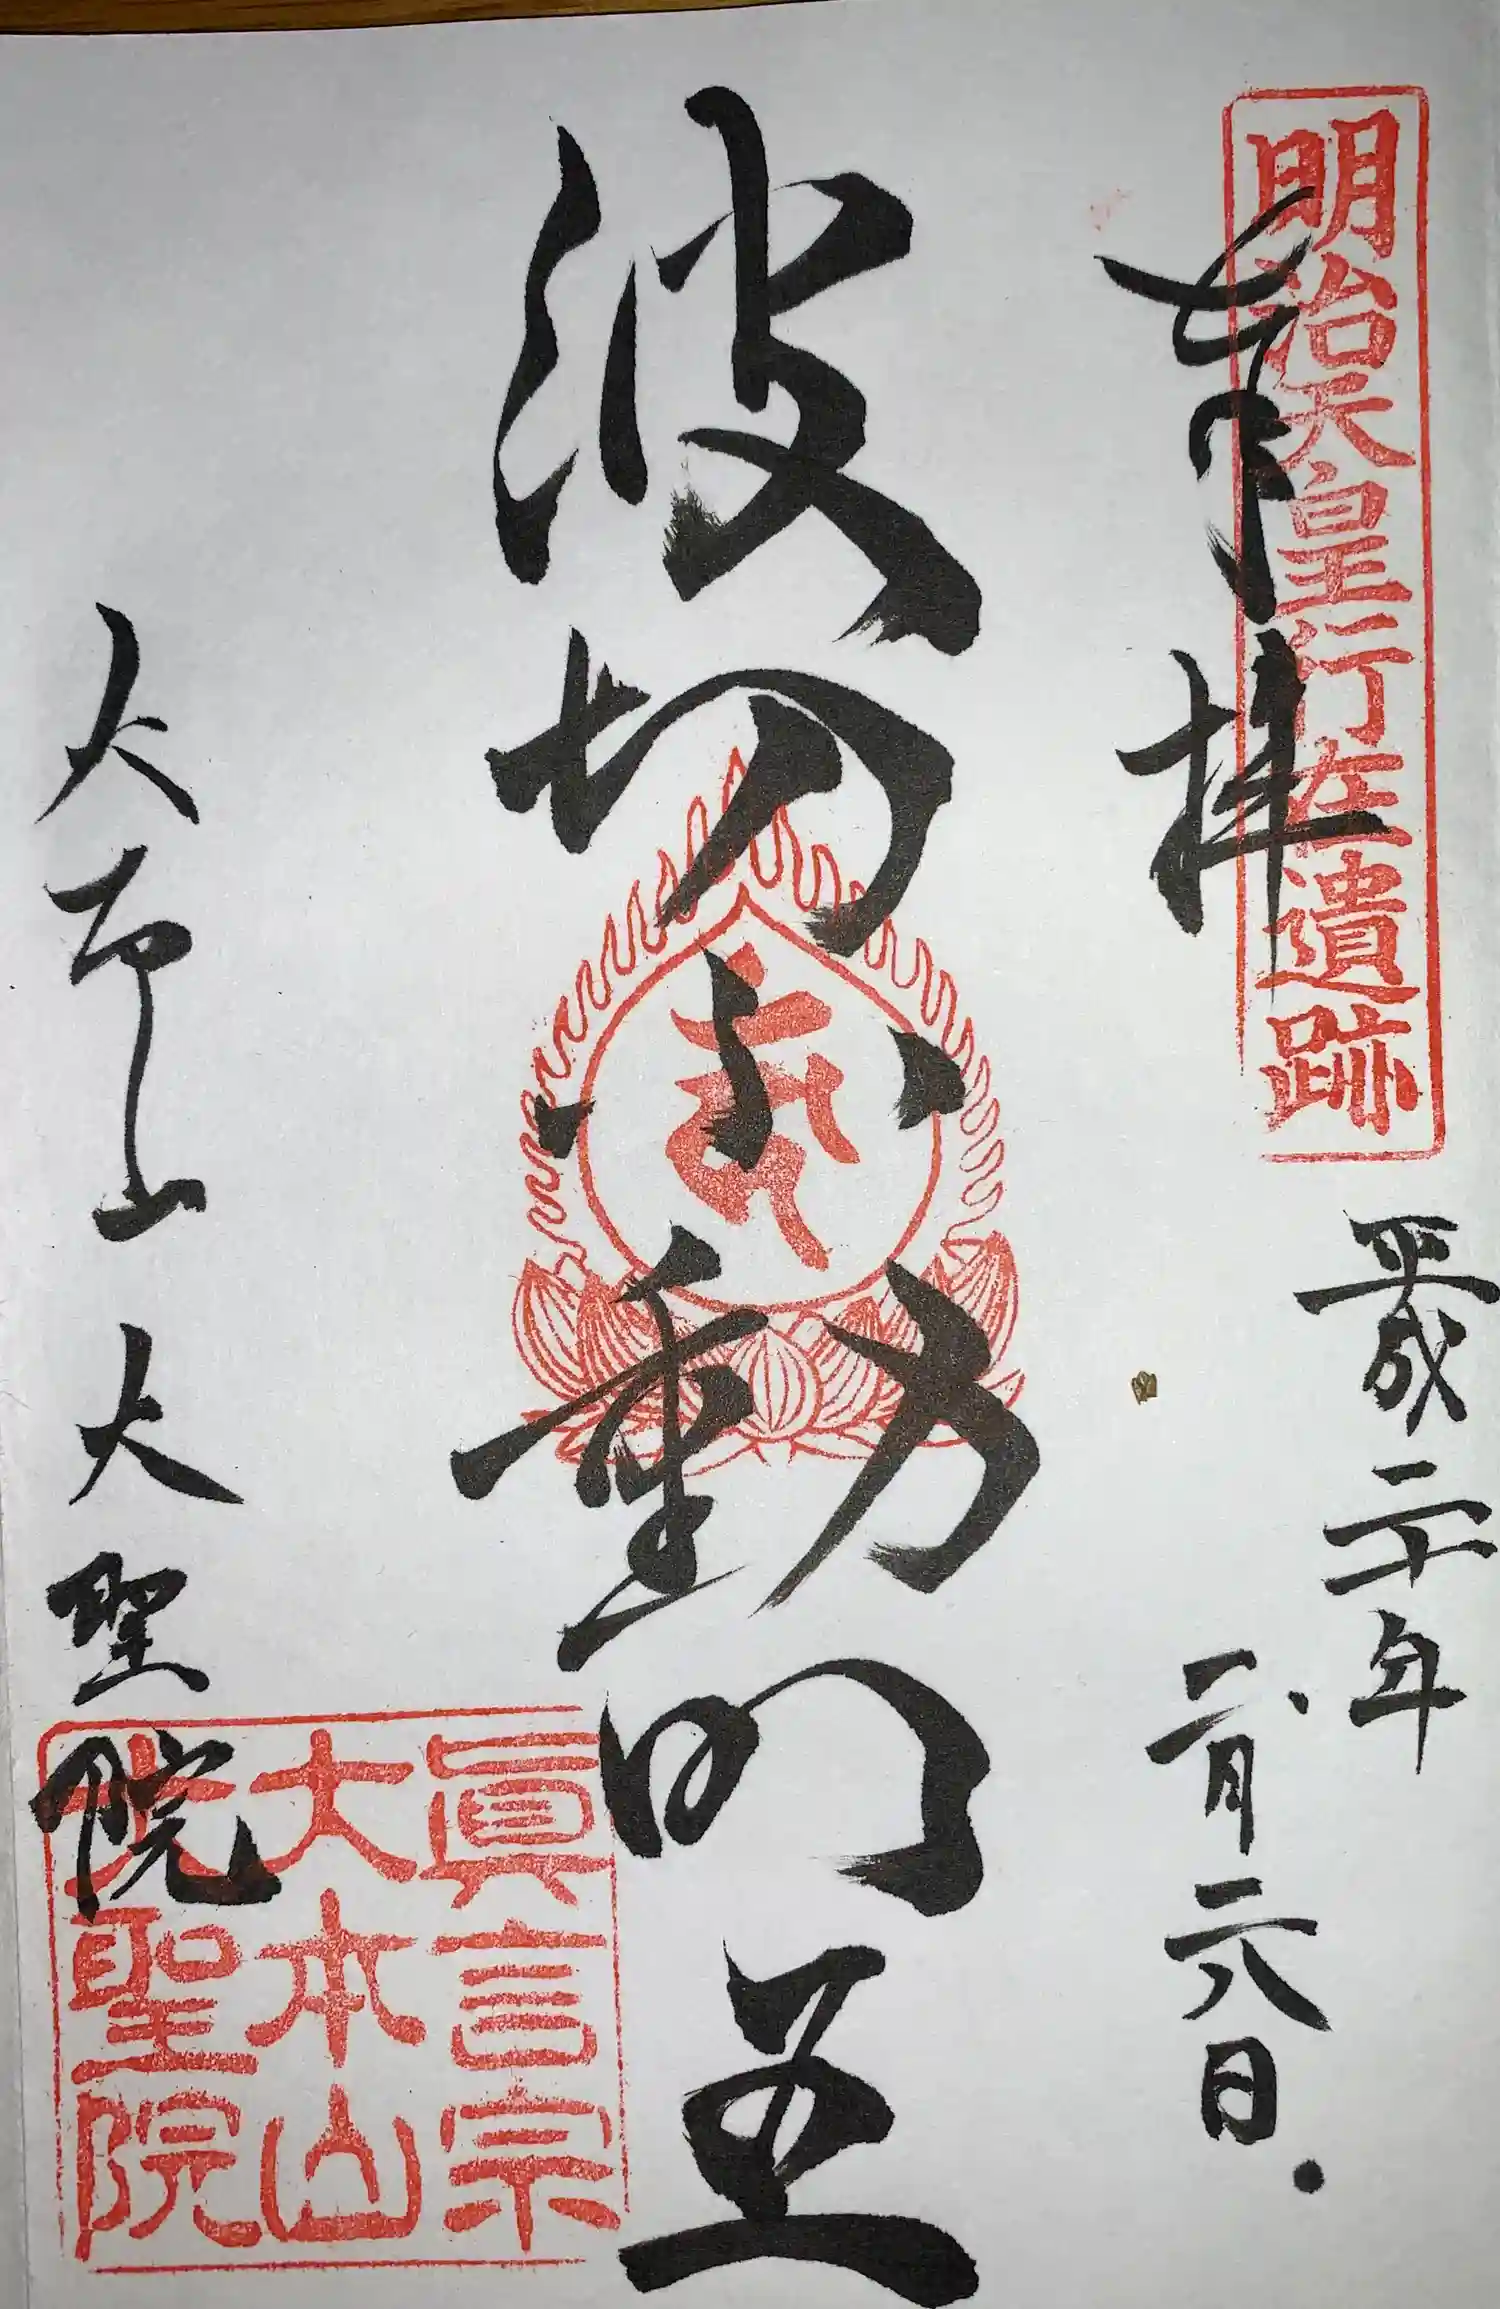 明治天皇行在遺跡
奉拝
平成二十年
一月二八日
波切不動明王
大本山大聖院
眞言宗
大本山
大聖院